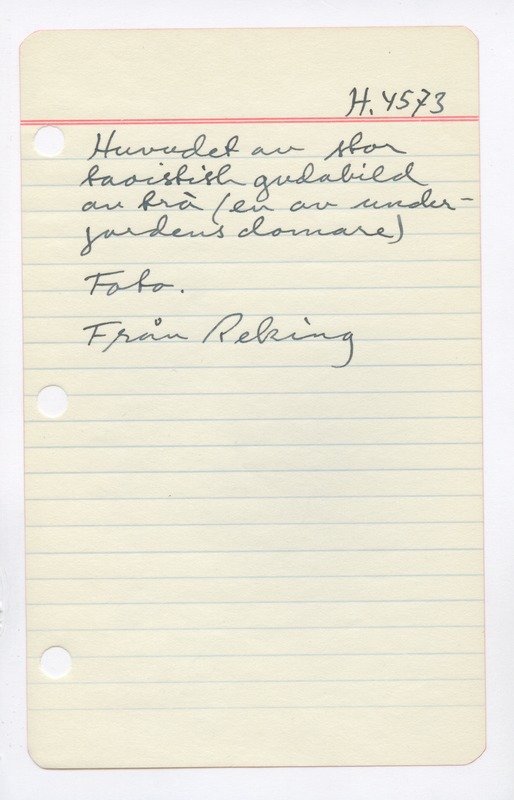 H. 4573
Huvudet av stor
taoistish gudabild
av trä (en av under-
jordens domare)
Foto.
Från Peking